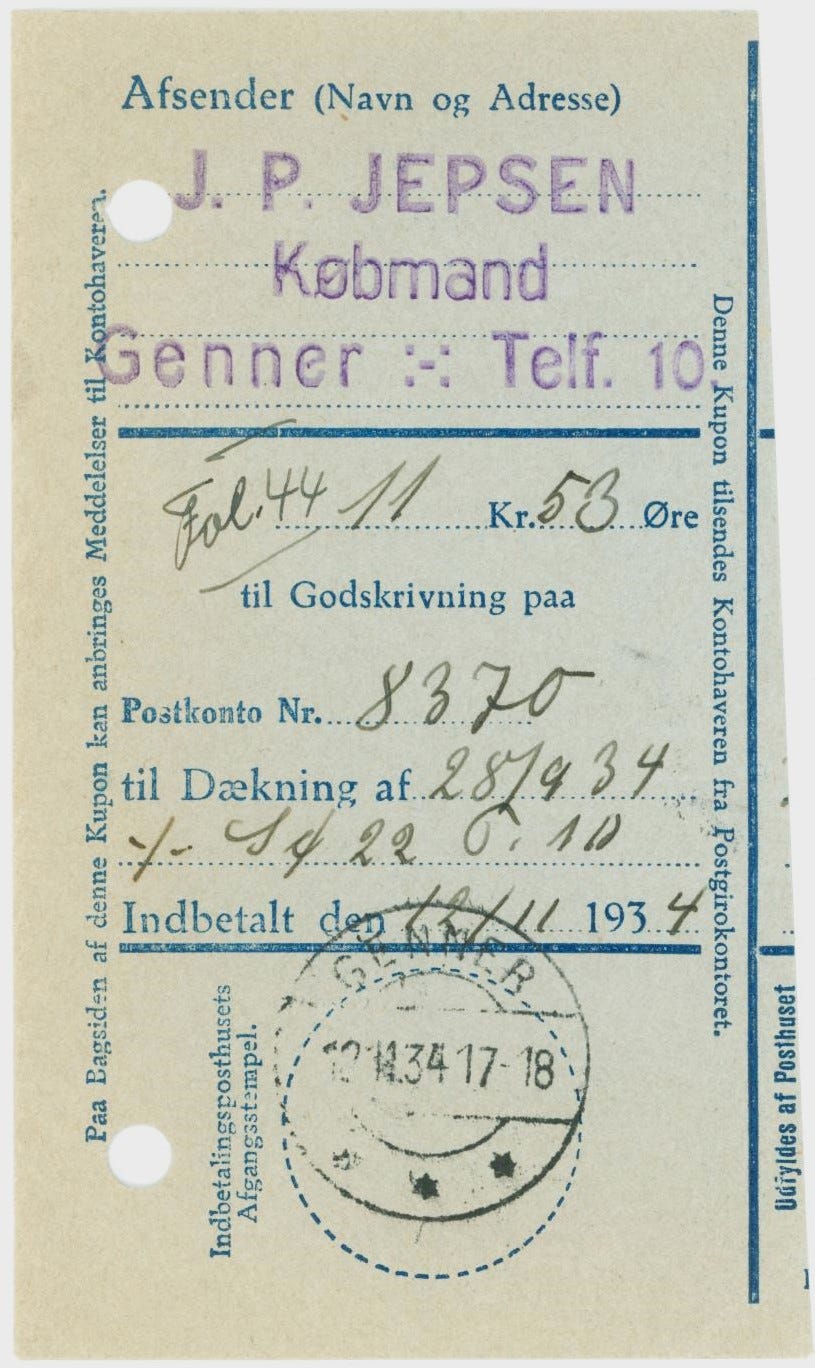 Afsender (Navn og Adresse)
J. P. JEPSEN
Købmand
Genner :-: Telf. 10.
Fol. 44 11 Kr. 53 Øre
til Godskrivning paa
Postkonto Nr. 8370
til Dækning af 28/9 34
22 10
Indbetalt den 12/11 1934
GENNER
12.11.34 17-18
Indbetalingsposthusets
Afgangsstempel.
Paa Bagsiden af denne Kupon kan anbringes Meddelelser til Kontohaveren.
Denne Kupon tilsendes Kontohaveren fra Postgirokontoret.
Udfyldes af Posthuset